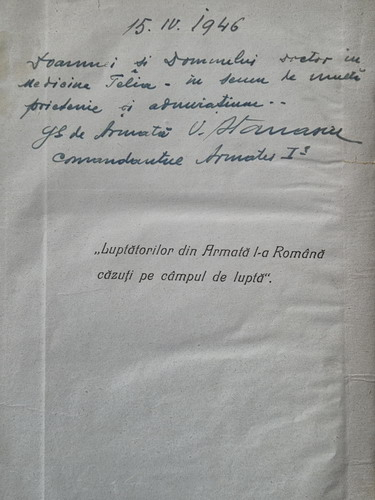 15. IV. 1946
Doamnei și Domnului doctor în
medicină Telia - în semn de multă
prietenie și admirațiune --
Gl. de Armată V. Atanasiu
Comandantul Armatei I-a
„Luptătorilor din Armată I-a Română
căzuți pe câmpul de luptă".